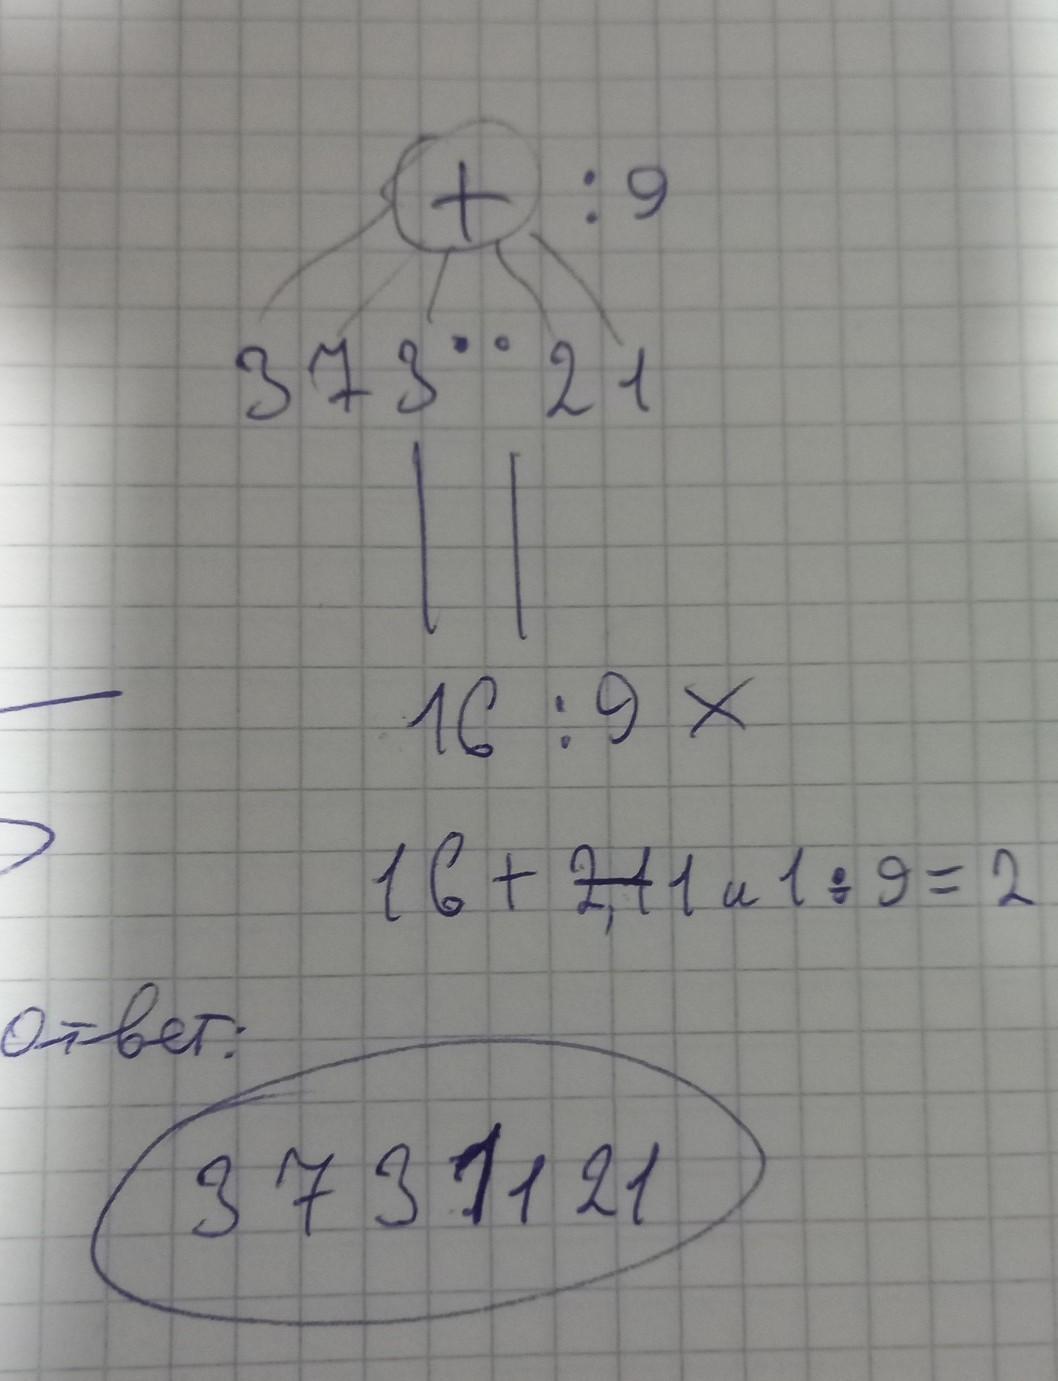 + : 9
3 7 3 • • 2 1
16 : 9 ×
16 + 2,1 1 и 1 : 9 = 2
Ответ:
3 7 3 1 1 2 1